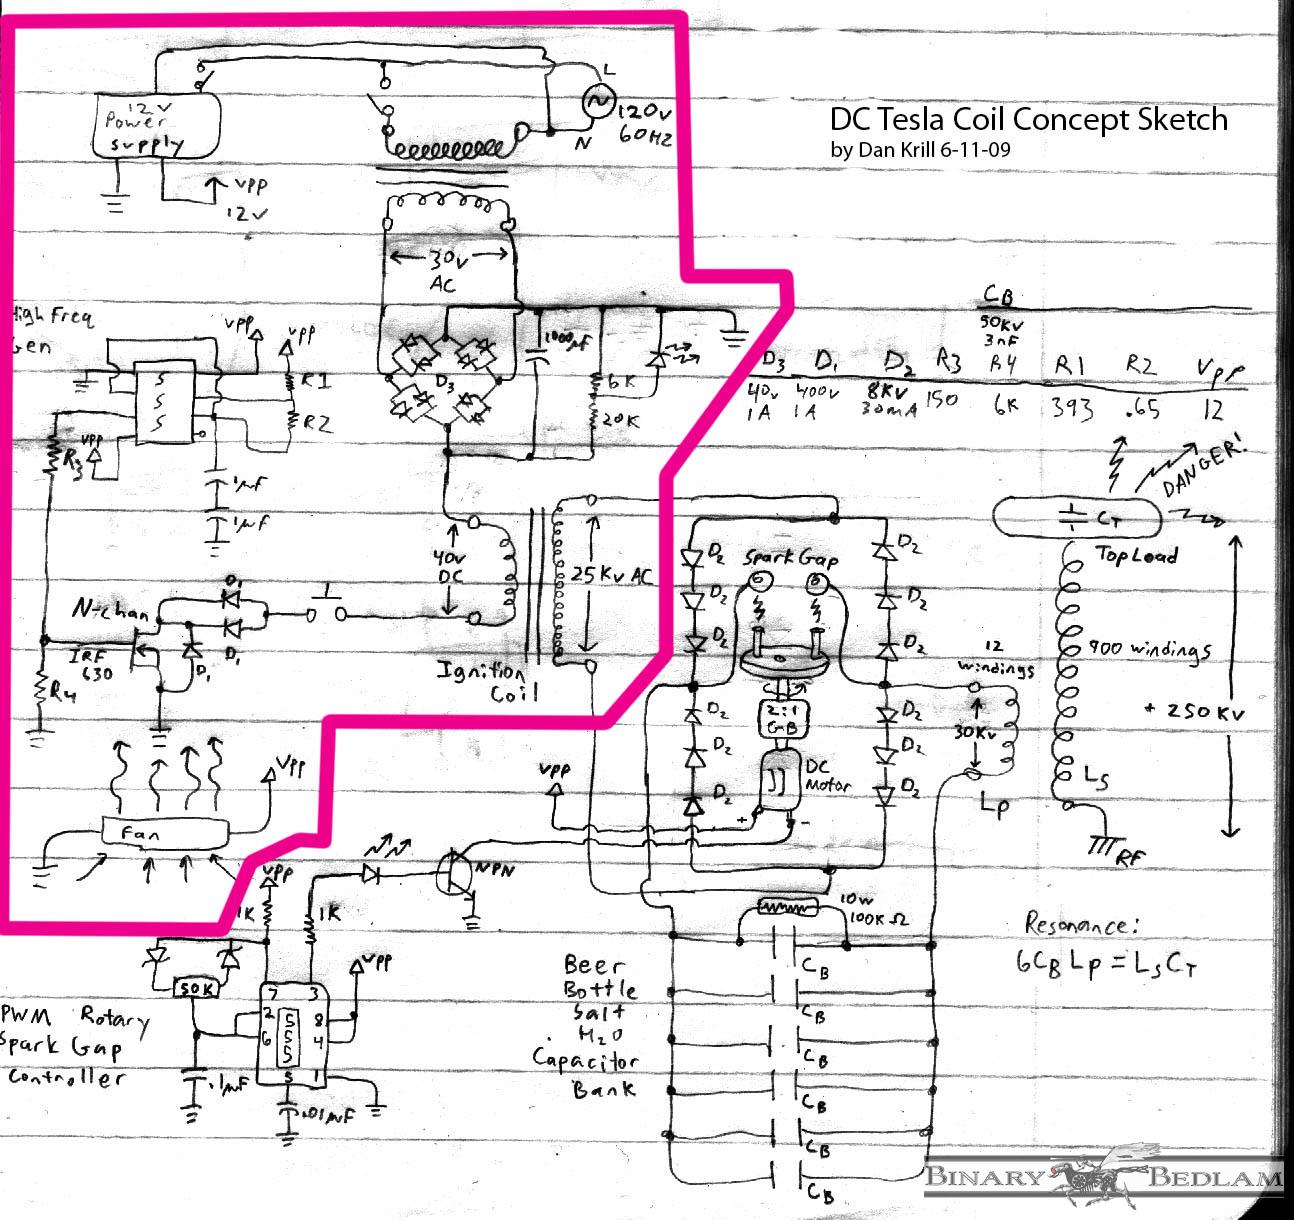 DC Tesla Coil Concept Sketch
by Dan Krill 6-11-09
12v
Power
supply
L
N
120v
60Hz
VPP
12v
30v
AC
High Freq
Gen
VPP
VPP
5
5
5
R1
R2
R3
VPP
1µF
1µF
D3
1000µF
6K
20K
CB
50KV
3nF
D3 D1 D2 R3 R4 R1 R2 VPP
40v 400v 8KV 150 6K 393 .65 12
1A 1A 30mA
N-chan
IRF
630
R4
D1
D1
D1
40v
DC
25 Kv AC
Ignition
Coil
Spark Gap
D2
D2
D2
D2
D2
D2
D2
D2
D2
D2
D2
D2
2:1
GB
DC
Motor
+
-
12
windings
30Kv
LP
DANGER!
CT
Top Load
900 windings
+ 250 KV
LS
RF
VPP
Fan
VPP
NPN
VPP
1K
1K
VPP
50K
7
3
2
6
8
4
5
1
555
.1µF
.01µF
PWM Rotary
Spark Gap
Controller
10W
100KΩ
Beer
Bottle
Salt
H2O
Capacitor
Bank
CB
CB
CB
CB
CB
CB
Resonance:
6CB LP = LS CT
BINARY BEDLAM